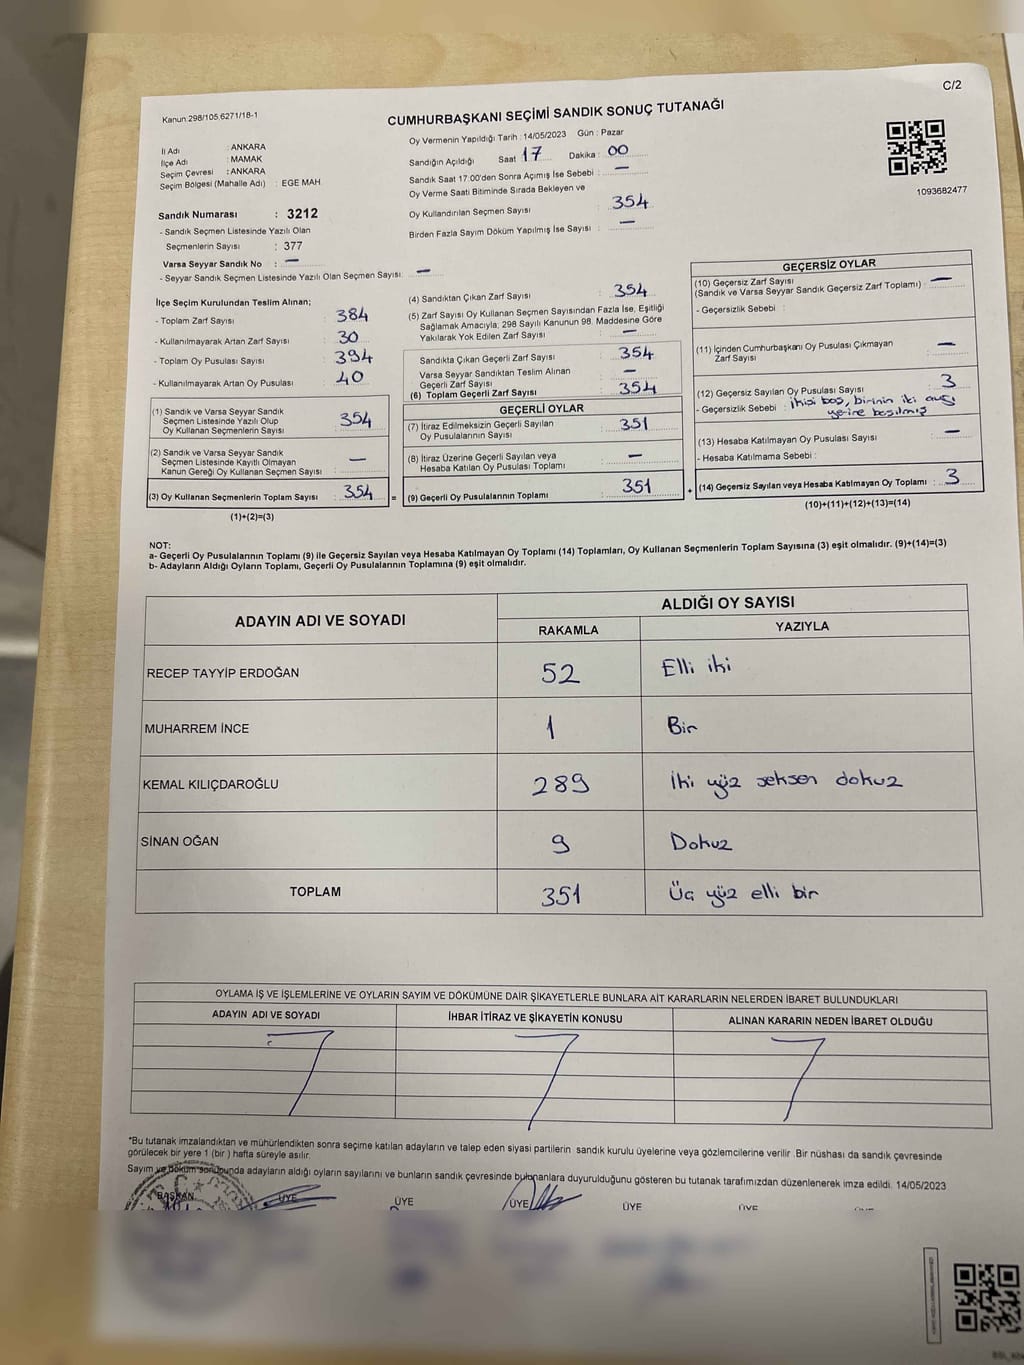 C/2
Kanun.298/105.6271/18-1
CUMHURBAŞKANI SEÇİMİ SANDIK SONUÇ TUTANAĞI
İl Adı : ANKARA
İlçe Adı : MAMAK
Seçim Çevresi : ANKARA
Seçim Bölgesi (Mahalle Adı) : EGE MAH
Oy Vermenin Yapıldığı Tarih : 14/05/2023 Gün : Pazar
Sandığın Açıldığı Saat 17 Dakika : 00
Sandık Saat 17:00'den Sonra Açımış İse Sebebi : —
Oy Verme Saati Bitiminde Sırada Bekleyen ve
Oy Kullandırılan Seçmen Sayısı : 354
Birden Fazla Sayım Döküm Yapılmış İse Sayısı : —
1093682477
Sandık Numarası : 3212
- Sandık Seçmen Listesinde Yazılı Olan
Seçmenlerin Sayısı : 377
Varsa Seyyar Sandık No : —
- Seyyar Sandık Seçmen Listesinde Yazılı Olan Seçmen Sayısı: —
İlçe Seçim Kurulundan Teslim Alınan;
- Toplam Zarf Sayısı : 384
- Kullanılmayarak Artan Zarf Sayısı : 30
- Toplam Oy Pusulası Sayısı : 394
- Kullanılmayarak Artan Oy Pusulası : 40
(1) Sandık ve Varsa Seyyar Sandık
Seçmen Listesinde Yazılı Olup
Oy Kullanan Seçmenlerin Sayısı : 354
(2) Sandık ve Varsa Seyyar Sandık
Seçmen Listesinde Kayıtlı Olmayan
Kanun Gereği Oy Kullanan Seçmen Sayısı : —
(3) Oy Kullanan Seçmenlerin Toplam Sayısı : 354 =
(1)+(2)=(3)
(4) Sandıktan Çıkan Zarf Sayısı : 354
(5) Zarf Sayısı Oy Kullanan Seçmen Sayısından Fazla İse, Eşitliği
Sağlamak Amacıyla; 298 Sayılı Kanunun 98. Maddesine Göre
Yakılarak Yok Edilen Zarf Sayısı : —
Sandıkta Çıkan Geçerli Zarf Sayısı : 354
Varsa Seyyar Sandıktan Teslim Alınan
Geçerli Zarf Sayısı : —
(6) Toplam Geçerli Zarf Sayısı : 354
GEÇERLİ OYLAR
(7) İtiraz Edilmeksizin Geçerli Sayılan
Oy Pusulalarının Sayısı : 351
(8) İtiraz Üzerine Geçerli Sayılan veya
Hesaba Katılan Oy Pusulası Toplamı : —
(9) Geçerli Oy Pusulalarının Toplamı : 351 +
GEÇERSİZ OYLAR
(10) Geçersiz Zarf Sayısı
(Sandık ve Varsa Seyyar Sandık Geçersiz Zarf Toplamı) : —
- Geçersizlik Sebebi :
(11) İçinden Cumhurbaşkanı Oy Pusulası Çıkmayan
Zarf Sayısı : —
(12) Geçersiz Sayılan Oy Pusulası Sayısı : 3
- Geçersizlik Sebebi : İkisi boş, birinin iki ayrı
yerine basılmış
(13) Hesaba Katılmayan Oy Pusulası Sayısı : —
- Hesaba Katılmama Sebebi :
(14) Geçersiz Sayılan veya Hesaba Katılmayan Oy Toplamı : 3
(10)+(11)+(12)+(13)=(14)
NOT:
a- Geçerli Oy Pusulalarının Toplamı (9) ile Geçersiz Sayılan veya Hesaba Katılmayan Oy Toplamı (14) Toplamları, Oy Kullanan Seçmenlerin Toplam Sayısına (3) eşit olmalıdır. (9)+(14)=(3)
b- Adayların Aldığı Oyların Toplamı, Geçerli Oy Pusulalarının Toplamına (9) eşit olmalıdır.
ADAYIN ADI VE SOYADI ALDIĞI OY SAYISI
RAKAMLA YAZIYLA
RECEP TAYYİP ERDOĞAN 52 Elli iki
MUHARREM İNCE 1 Bir
KEMAL KILIÇDAROĞLU 289 İki yüz seksen dokuz
SİNAN OĞAN 9 Dokuz
TOPLAM 351 Üç yüz elli bir
OYLAMA İŞ VE İŞLEMLERİNE VE OYLARIN SAYIM VE DÖKÜMÜNE DAİR ŞİKAYETLERLE BUNLARA AİT KARARLARIN NELERDEN İBARET BULUNDUKLARI
ADAYIN ADI VE SOYADI İHBAR İTİRAZ VE ŞİKAYETİN KONUSU ALINAN KARARIN NEDEN İBARET OLDUĞU
*Bu tutanak imzalandıktan ve mühürlendikten sonra seçime katılan adayların ve talep eden siyasi partilerin sandık kurulu üyelerine veya gözlemcilerine verilir. Bir nüshası da sandık çevresinde
görülecek bir yere 1 (bir ) hafta süreyle asılır.
Sayım ve döküm sonucunda adayların aldığı oyların sayılarını ve bunların sandık çevresinde bulunanlara duyurulduğunu gösteren bu tutanak tarafımızdan düzenlenerek imza edildi. 14/05/2023
BAŞKAN ÜYE ÜYE ÜYE ÜYE ÜYE